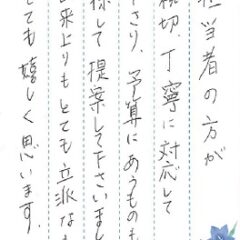 担当者の方が
親切、丁寧に対応して
下さり、予算にあうものも
探して提案して下さいまし
出来上りもとても立派なも
とても嬉しく思います。